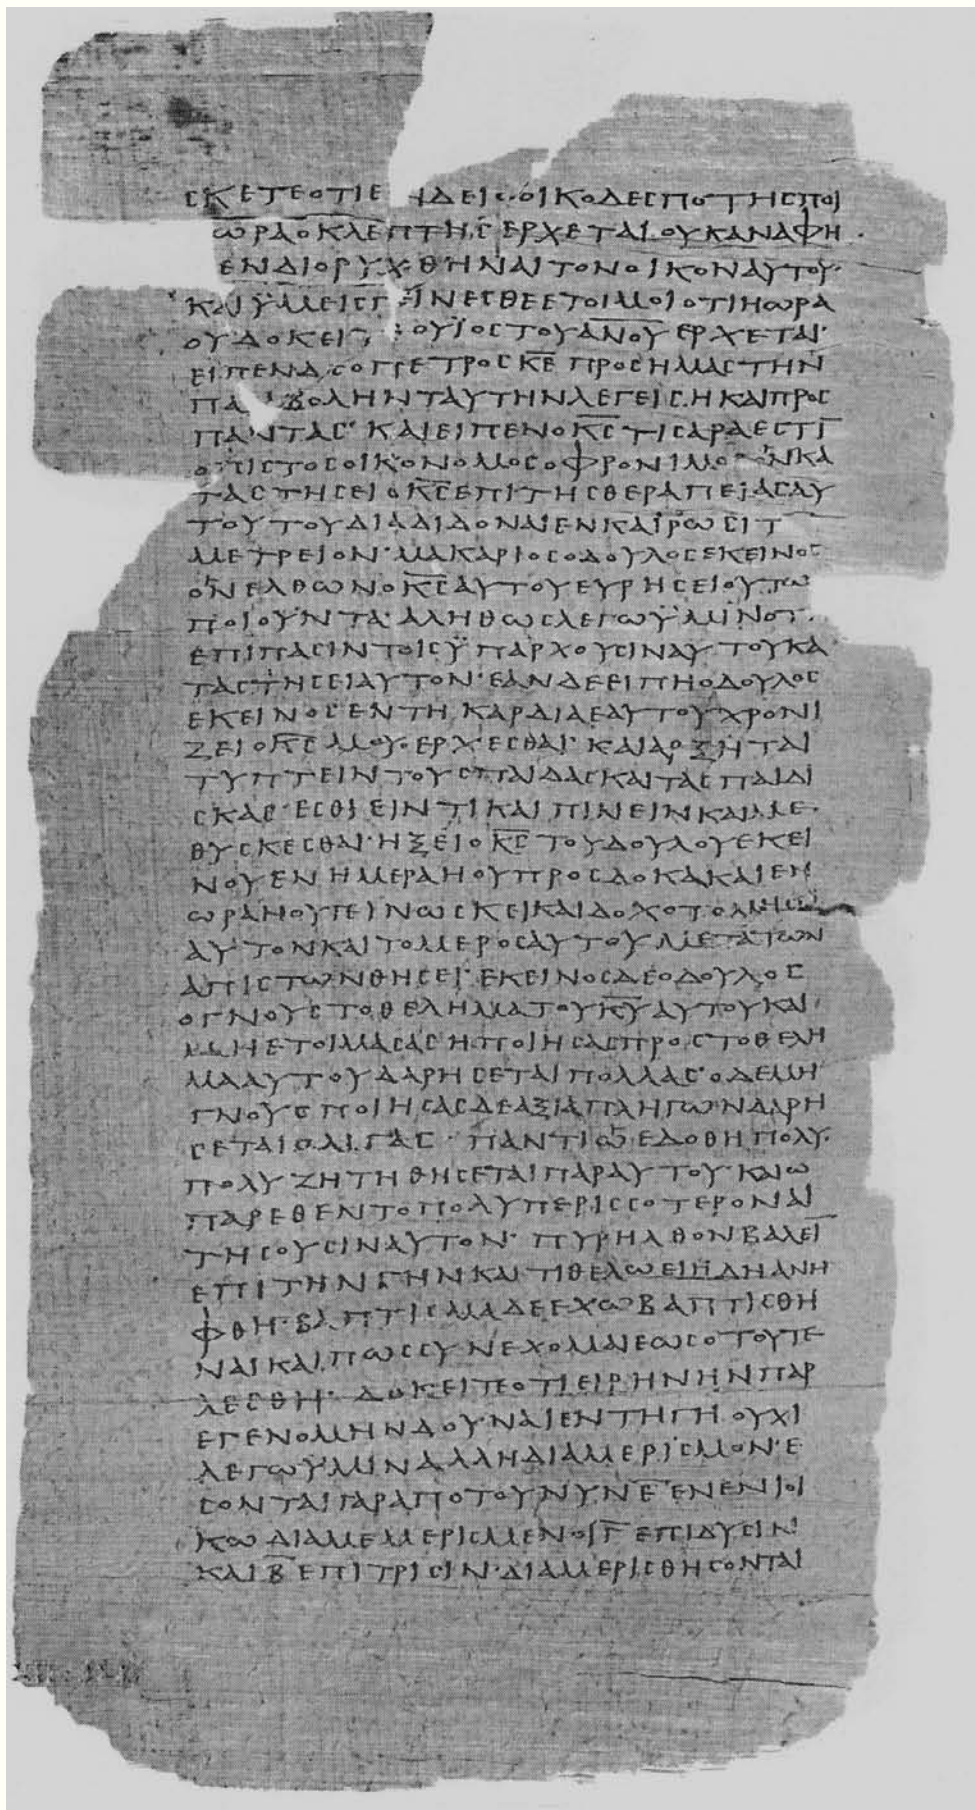 ϲκετεοτιε ηδει οοικοδεϲποτηϲποι
ωραοκλεπτηϲερχεταιουκαναφη
ενδιορυχθηναιτονοικοναυτου·
καιϋμειϲγ ινεϲθεετοιμοιοτιηωρα
ουδοκει ουϊοϲτουα̅ν̅ο̅υ̅ερχεται·
ειπενδ οπετροϲκ̅ε̅προϲημαϲτην
πα βοληνταυτηνλεγειϲηκαιπροϲ
πανταϲ· καιειπενοκ̅ϲ̅τιϲαραεϲτι̅
οπιϲτοϲοικονομοϲοφρονιμο ονκα
ταϲτηϲειοκ̅ϲ̅επιτηϲθεραπειαϲαυ
τουτουδιαδιδοναιενκαιρωϲιτ
μετρειον·μακαριοϲοδουλοϲεκεινοϲ
ονελθωνοκ̅ϲ̅αυτουευρηϲειουτω
ποιουντα·αληθωϲλεγωϋμινοτ
επιπαϲιντοιϲϋπαρχουϲιναυτουκα
ταϲτηϲειαυτον·εανδεειπηοδουλοϲ
εκεινοϲεντηκαρδιαεαυτουχρονι
ζειοκ̅ϲ̅μουερχεϲθαι·καιαρξηται
τυπτειντουϲπαιδαϲκαιταϲπαιδι
ϲκαϲ·εϲθιειντικαιπινεινκαιμε
θυϲκεϲθαι·ηξειοκ̅ϲ̅τουδουλουεκει
νουενημεραηουπροϲδοκακαιεν
ωραηουγεινωϲκεικαιδιχοτομηϲει
αυτονκαιτομεροϲαυτουμετατων
απιϲτωνθηϲει·εκεινοϲδεοδουλοϲ
ογνουϲτοθεληματουκ̅υ̅αυτουκαι
μηετοιμαϲαϲηποιηϲαϲπροϲτοθελη
μααυτουδαρηϲεταιπολλαϲ·οδεμη
γνουϲποιηϲαϲδεαξιαπληγωνδαρη
ϲεταιολιγαϲ· παντιωεδοθηπολυ
πολυζητηθηϲεταιπαραυτου·καιω
παρεθεντοπολυπεριϲϲοτεροναι
τηϲουϲιναυτον· πυρηλθονβαλει̅
επιτηνγηνκαιτιθελωειηδηανη
φθη·βαπτιϲμαδεεχωβαπτιϲθη
ναικαιπωϲϲυνεχομαιεωϲοτουτε
λεϲθη· δοκειτεοτιειρηνηνπαρ
εγενομηνδουναιεντηγηουχι
λεγωϋμιναλληδιαμεριϲμον·ε
ϲονταιγαραποτουνυνε̅ενενιοι
κωδιαμεμεριϲμενοιγ̅επιδυϲιν
καιβ̅επιτριϲιν·διαμεριϲθηϲονται